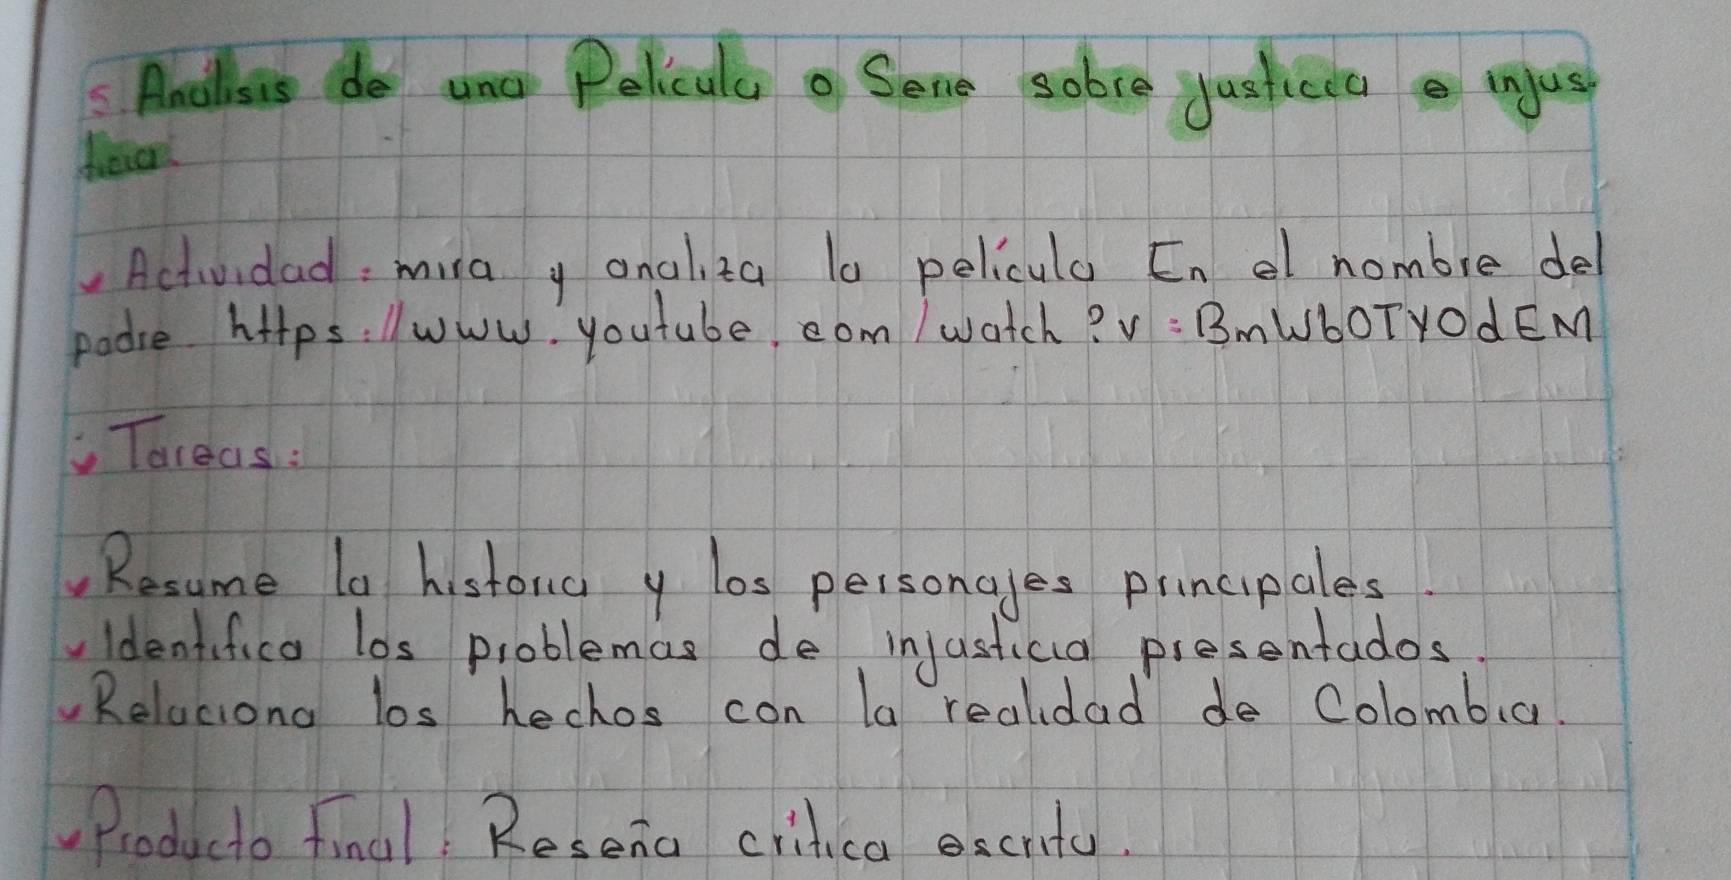 5. Análisis de una Película o Serie sobre justicia e injus-
ticia.
Actividad: mira y analiza la película En el nombre del
padre. https://www.youtube.com/watch?v=BmWbOTYOdEM
Tareas:
Resume la historia y los personajes principales.
Identifica los problemas de injusticia presentados.
Relaciona los hechos con la realidad de Colombia.
Producto Final: Reseña crítica escrita.